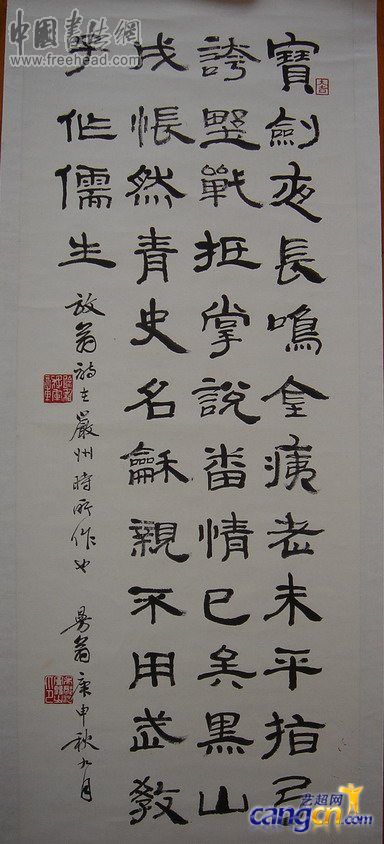 中國書法網
www.freehead.com
寶劍夜長鳴金痍老未平指弓
誇野戰抵掌說番情已矣黑山
戍悵然青史名龢親不用武敎
子作儒生
放翁詩在嚴州時所作也 曼翁庚申秋九月
艺超网
cangcn.com